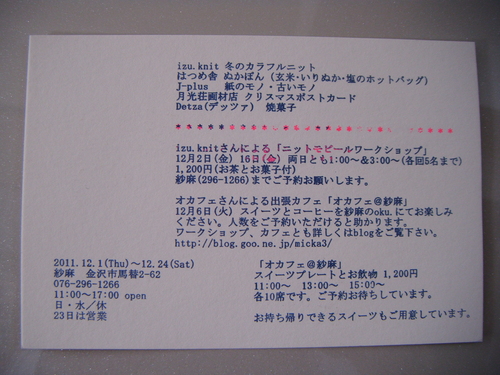 izu.knit 冬のカラフルニット
はつめ舎 ぬかぽん (玄米・いりぬか・塩のホットバッグ)
J-plus 紙のモノ・古いモノ
月光荘画材店 クリスマスポストカード
Detza(デッツァ) 焼菓子
izu.knitさんによる「ニットモビールワークショップ」
12月2日(金) 16日(金) 両日とも1:00〜&3:00〜(各回5名まで)
1,200円(お茶とお菓子付)
紗麻(296-1266)までご予約お願いします。
オカフェさんによる出張カフェ「オカフェ@紗麻」
12月6日(火) スイーツとコーヒーを紗麻のoku.にてお楽しみ
ください。人数をご予約いただけると助かります。
ワークショップ、カフェとも詳しくはblogをご覧下さい。
http://blog.goo.ne.jp/micka3/
2011.12.1(Thu)〜12.24(Sat)
紗麻 金沢市馬替2-62
076-296-1266
11:00〜17:00 open
日・水/休
23日は営業
「オカフェ@紗麻」
スイーツプレートとお飲物 1,200円
11:00〜 13:00〜 15:00〜
各10席です。ご予約お待ちしています。
お持ち帰りできるスイーツもご用意しています。